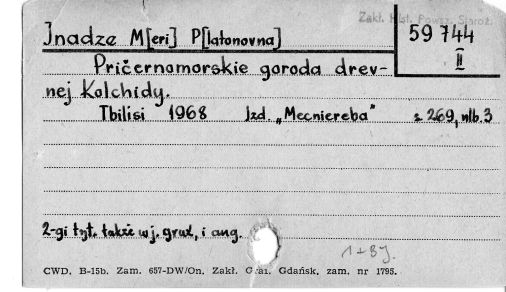 Zakł. Hist. Powsz. Staroż.
Inadze M[eri] P[latonovna]
59744
II
Pričernomorskie goroda drev-
nej Kolchidy.
Tbilisi 1968 Izd. „Mecniereba" s. 269, nlb. 3
2-gi tyt. także w j. gruz, i ang.
1+BJ.
CWD. B-15b. Zam. 657-DW/On. Zakł. Graf. Gdańsk, zam. nr 1795.